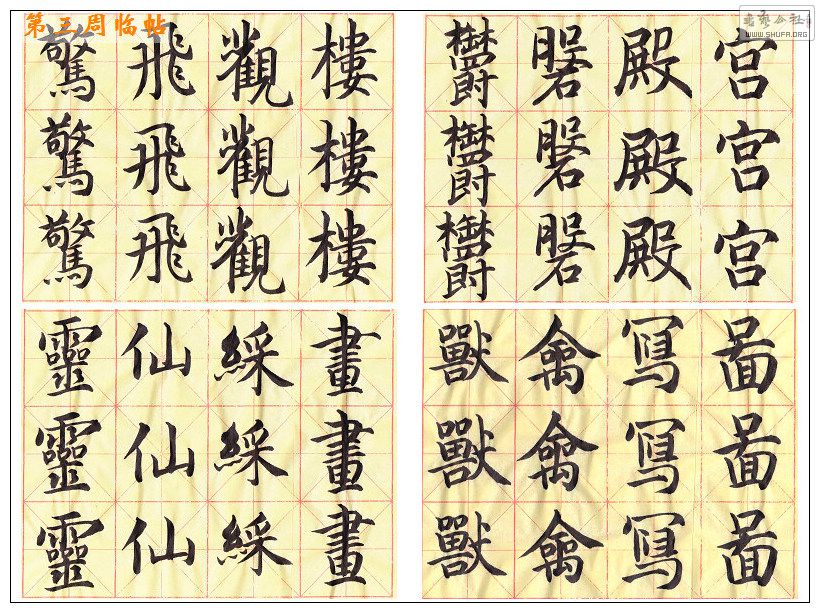 第三周临帖
書藝公社
WWW.SHUFA.ORG
宫宫宫
殿殿殿
磐磐磐
鬱鬱鬱
樓樓樓
觀觀觀
飛飛飛
驚驚驚
圖圖圖
寫寫寫
禽禽禽
獸獸獸
畫畫畫
綵綵綵
仙仙仙
靈靈靈